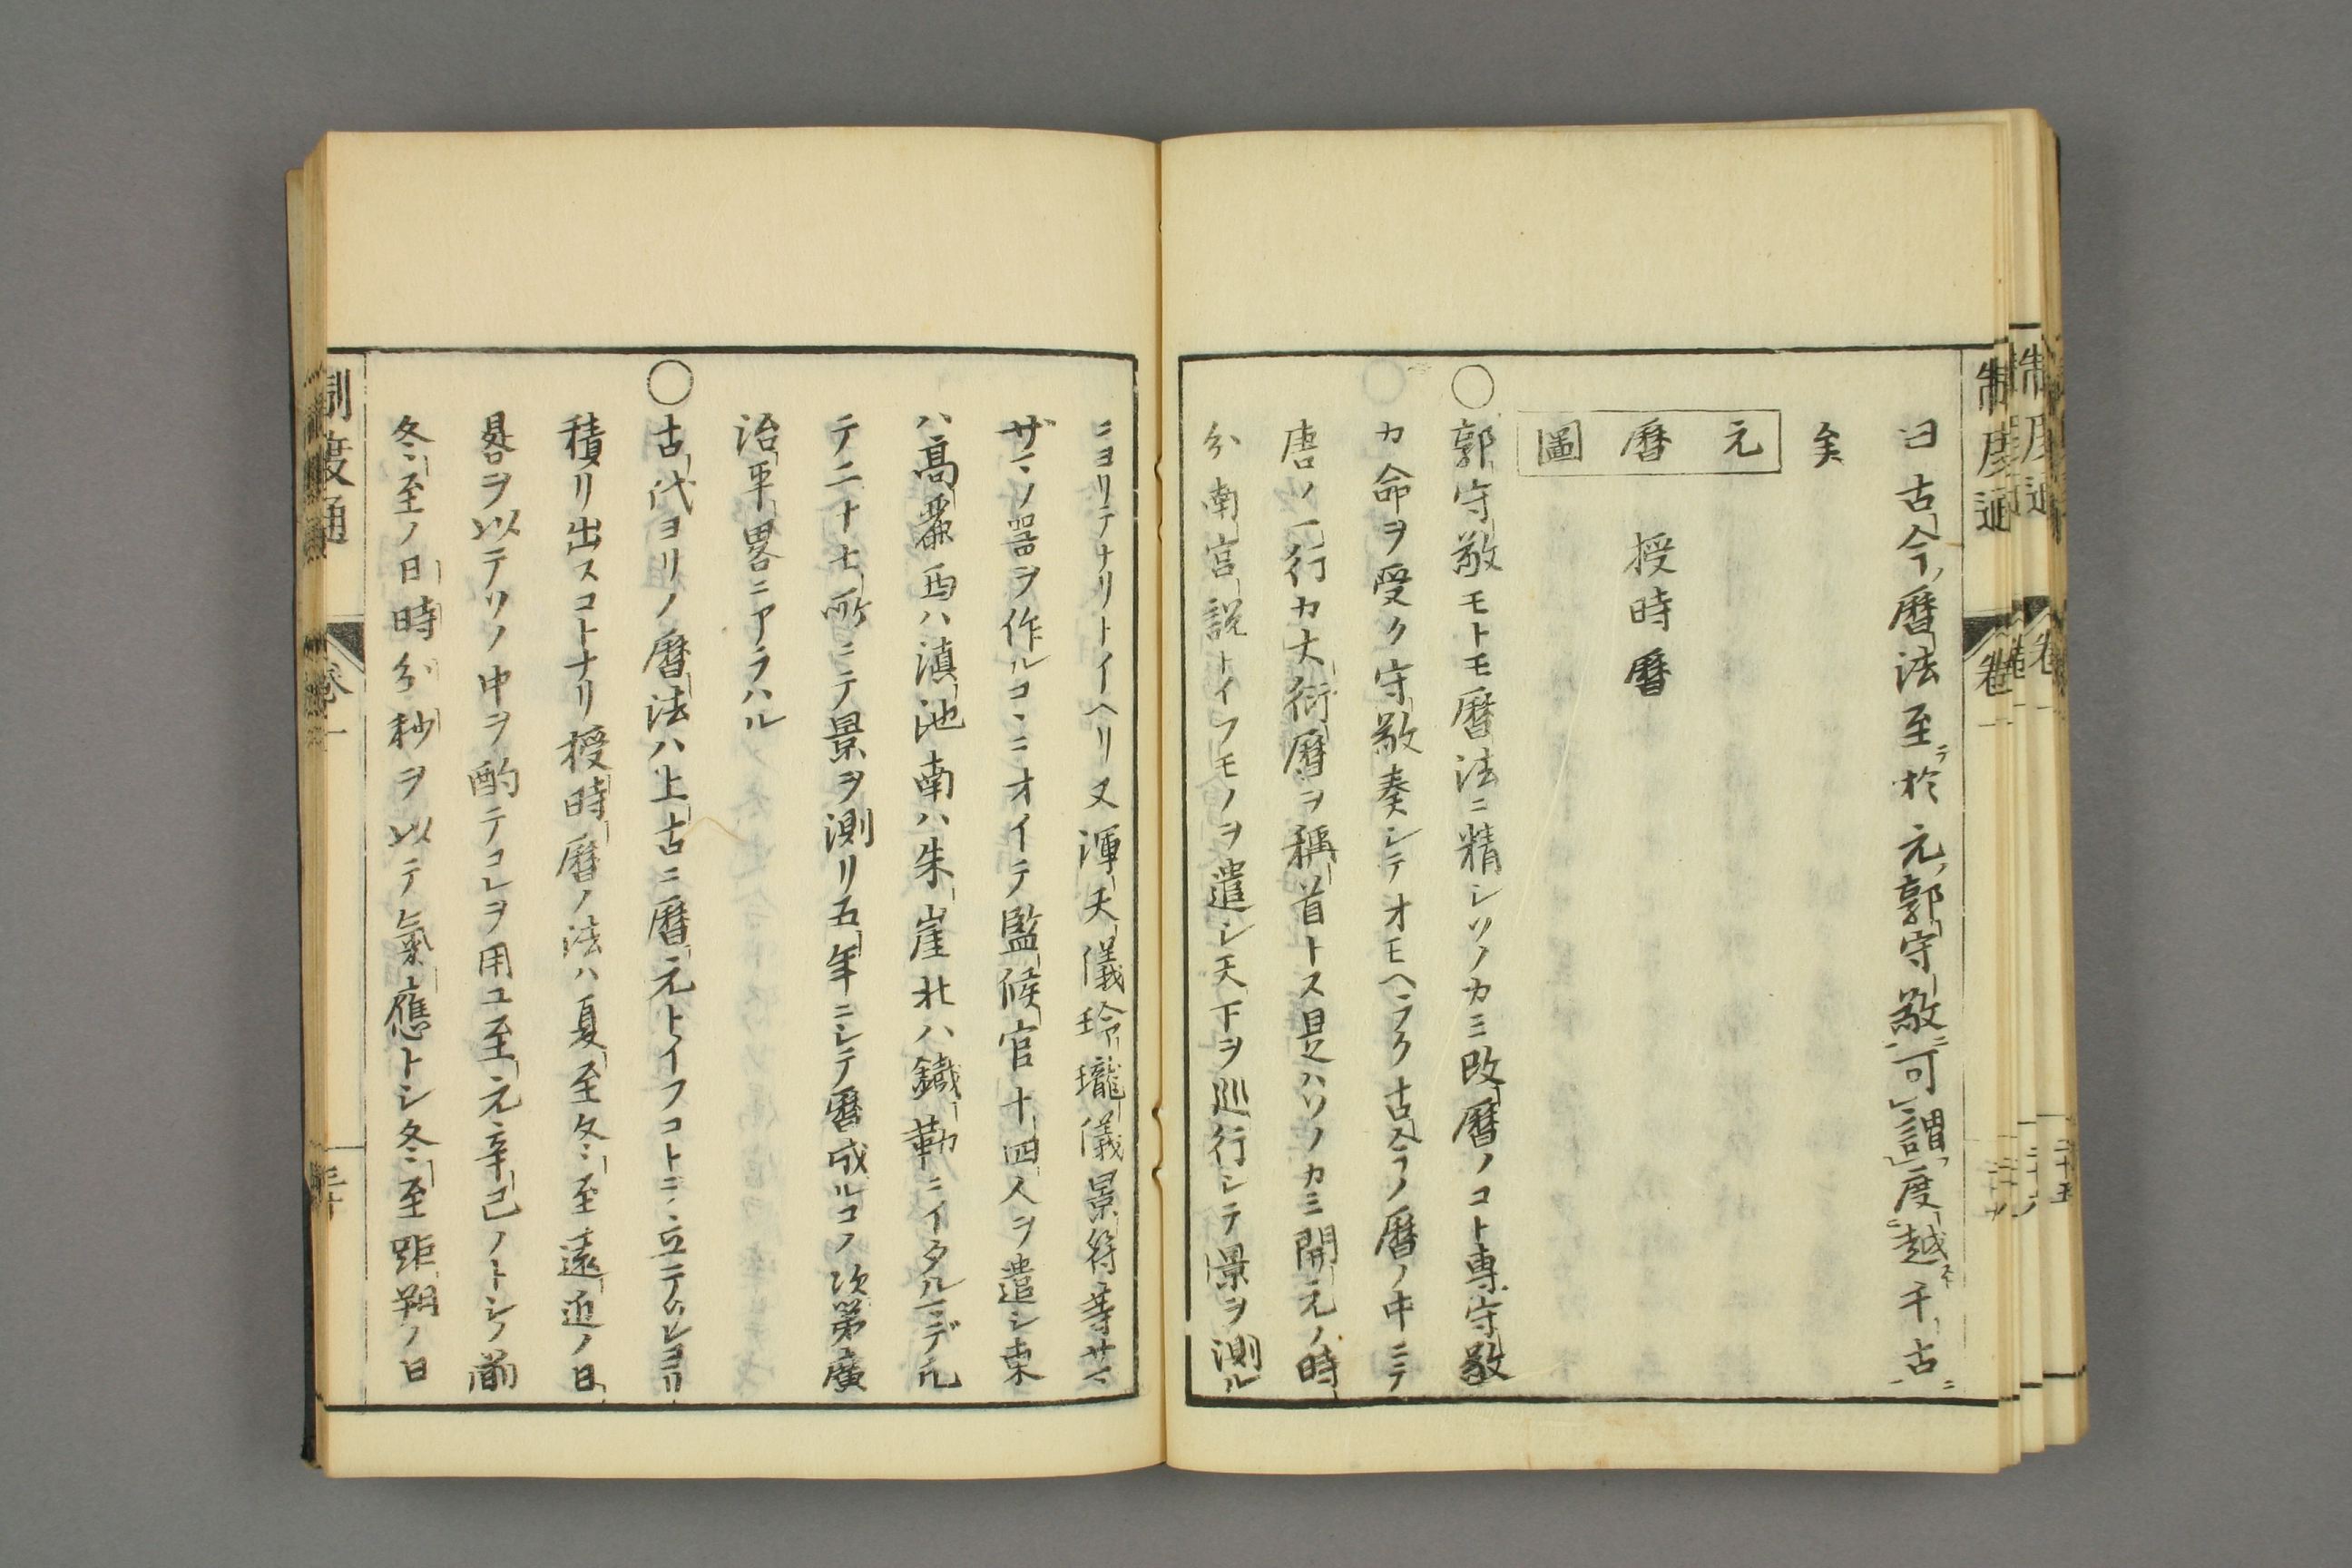 曰古今曆法至於元郭守敬可謂度越千古
矣
元曆圖
授時曆
○郭守敬モトモ曆法ニ精シソノカミ改曆ノコト專守敬
カ命ヲ受ク守敬奏シテオモヘラク古今ノ曆ノ中ニテ
唐ノ一行カ大衍曆ヲ稱首トス是ハソノカミ開元ノ時
分南宮說トイフモノヲ遣シ天下ヲ巡行シテ景ヲ測ル
ニヨリテナリトイヘリ又渾天儀玲瓏儀景符等サマ
ザマノ噐ヲ作ルコヽニオイテ監候官十四人ヲ遣シ東
ハ高麗西ハ滇池南ハ朱崖北ハ鐵勒ニイタルマデ凢
テ二十七所ニテ景ヲ測リ五年ニシテ曆成ルコノ次第廣
治平畧ニアラハル
○古代ヨリノ曆法ハ上古ニ曆元トイフコトヲ立テソレヨリ
積リ出スコトナリ授時曆ノ法ハ夏至冬至遠近ノ日
晷ヲ以テソノ中ヲ酌テコレヲ用ユ至元辛巳ノトシノ前
冬至ノ日時分秒ヲ以テ氣應トシ冬至距朔ノ日
制度通
卷一
三十
制度通
卷一